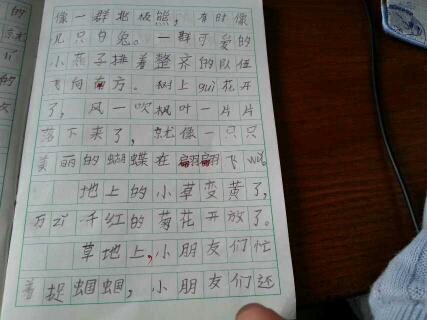 像一群北极熊，有时像
几只白兔。一群可爱的
小燕子排着整齐的队伍
飞向南方。树上guì花开
了，风一吹枫叶一片片
落下来了，就像一只只
美丽的蝴蝶在翩翩飞wǔ。
地上的小草变黄了，
万zǐ千红的菊花开放了。
草地上，小朋友们忙
着捉蝈蝈，小朋友们还